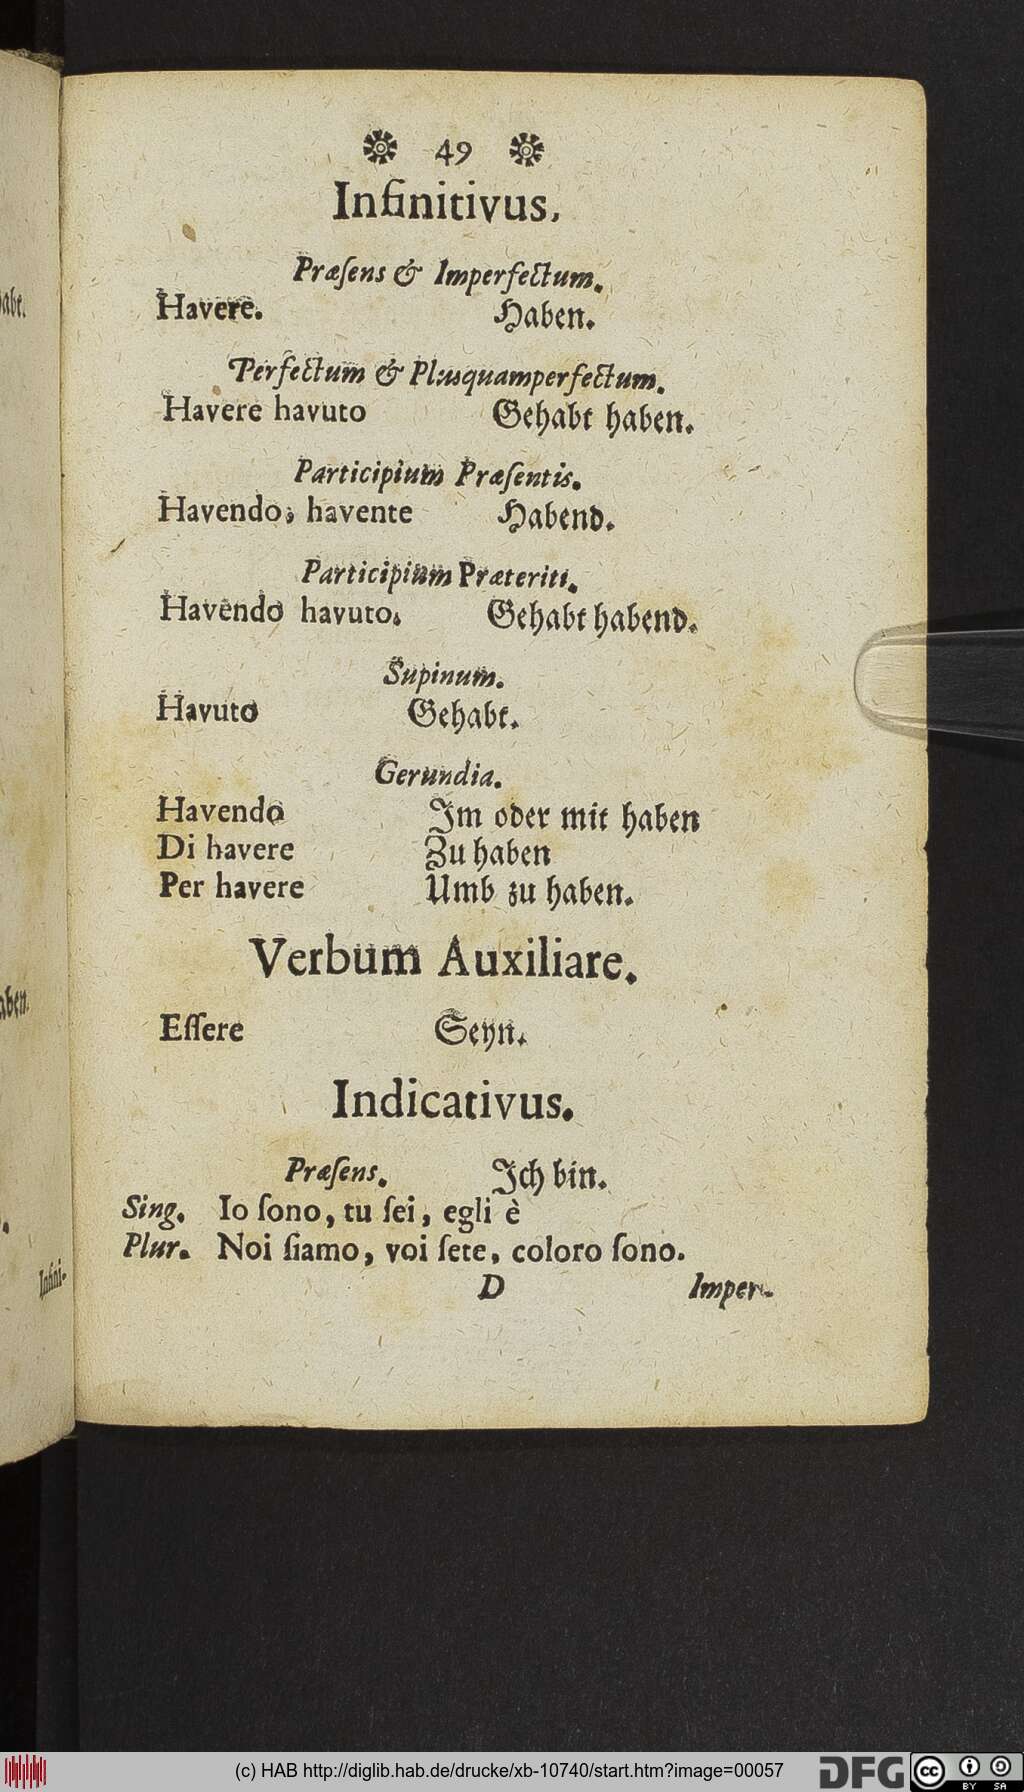 49
Infinitivus.
Præſens & Imperfectum.
Havere. Haben.
Perfectum & Plusquamperfectum.
Havere havuto Gehabt haben.
Participium Præſentis.
Havendo, havente Habend.
Participium Præteriti.
Havendo havuto. Gehabt habend.
Supinum.
Havuto Gehabt.
Gerundia.
Havendo Im oder mit haben
Di havere Zu haben
Per havere Umb zu haben.
Verbum Auxiliare.
Eſſere Seyn.
Indicativus.
Præſens. Ich bin.
Sing. Io ſono, tu ſei, egli è
Plur. Noi ſiamo, voi ſete, coloro ſono.
D Imper-
habt.
haben.
Infini-
(c) HAB http://diglib.hab.de/drucke/xb-10740/start.htm?image=00057
DFG
cc BY SA